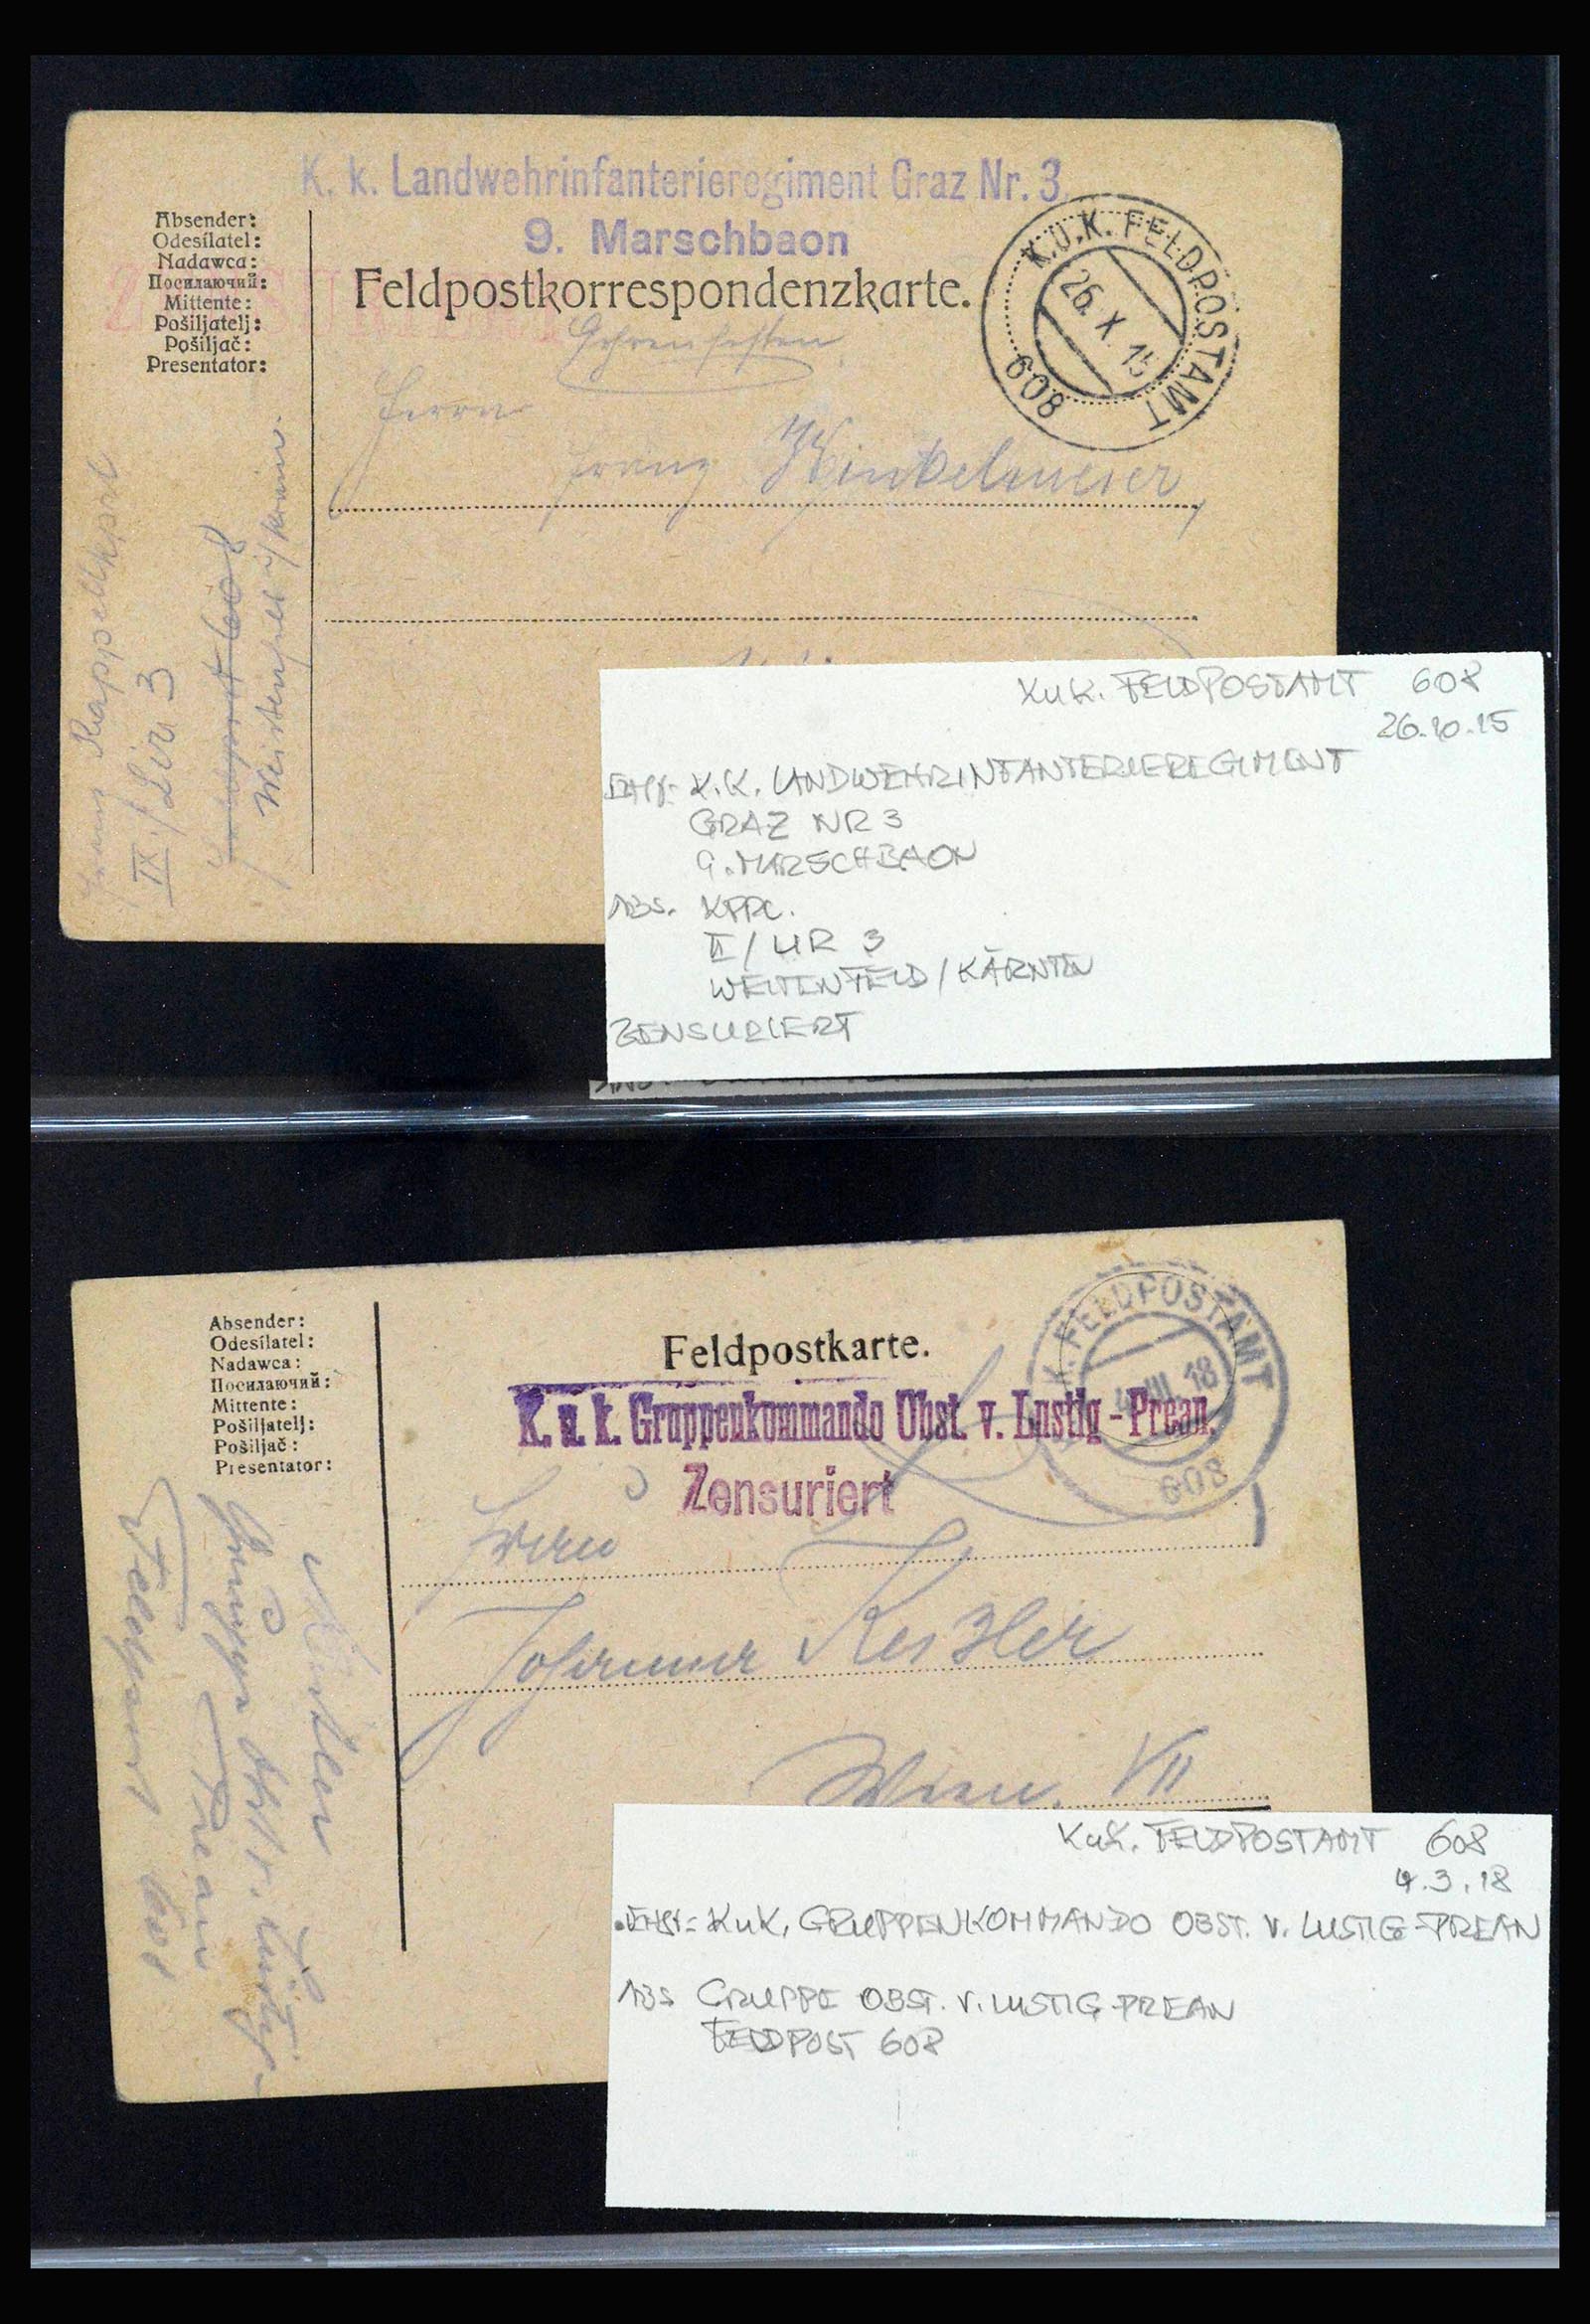 K. k. Landwehrinfanterieregiment Graz Nr. 3.
9. Marschbaon
Feldpostkorrespondenzkarte.
K.U.K. FELDPOSTAMT
26. X. 15
608
Absender:
Odesílatel:
Nadawca:
Посилаючий:
Mittente:
Pošiljatelj:
Pošiljač:
Presentator:
Herrn
Franz Winkelmeier
IX./Lir 3
Feldpost 608
KuK. FELDPOSTAMT 608
26.10.15
K.K. LANDWEHRINFANTERIEREGIMENT
GRAZ NR 3
9. MARSCHBAON
ABS. KPPC.
II/LIR 3
WEITENFELD/KÄRNTEN
ZENSURIERT
Absender:
Odesílatel:
Nadawca:
Посилаючий:
Mittente:
Pošiljatelj:
Pošiljač:
Presentator:
Feldpostkarte.
K. FELDPOSTAMT
4. III. 18
608
K. u. k. Gruppenkommando Obst. v. Lustig-Prean.
Zensuriert
Frau
Wien. VII
Gruppe Obst. v. Lustig-
Prean
Feldpost 608
KuK. FELDPOSTAMT 608
4.3.18
KuK. GRUPPENKOMMANDO OBST. V. LUSTIG-PREAN
ABS GRUPPE OBST. V. LUSTIG-PREAN
FELDPOST 608